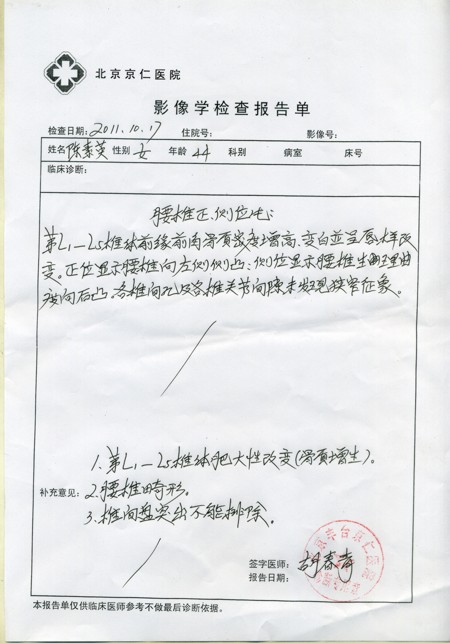 北京京仁医院
影像学检查报告单
检查日期: 2011.10.17 住院号: 影像号:
姓名 陈素英 性别 女 年龄 44 科别 病室 床号
临床诊断:
腰椎正.侧位片:
第L₁—L₅椎体前缘前角骨质密度增高、变白并呈唇样改
变。正位显示腰椎向左侧侧凸;侧位显示腰椎生理弯曲
度向后凸。各椎间孔及各椎关节间隙未发现狭窄征象。
1.第L₁—L₅椎体肥大性改变(骨质增生)。
补充意见: 2.腰椎畸形。
3.椎间盘突出不能排除。
签字医师: 胡春芳
报告日期:
本报告单仅供临床医师参考不做最后诊断依据。